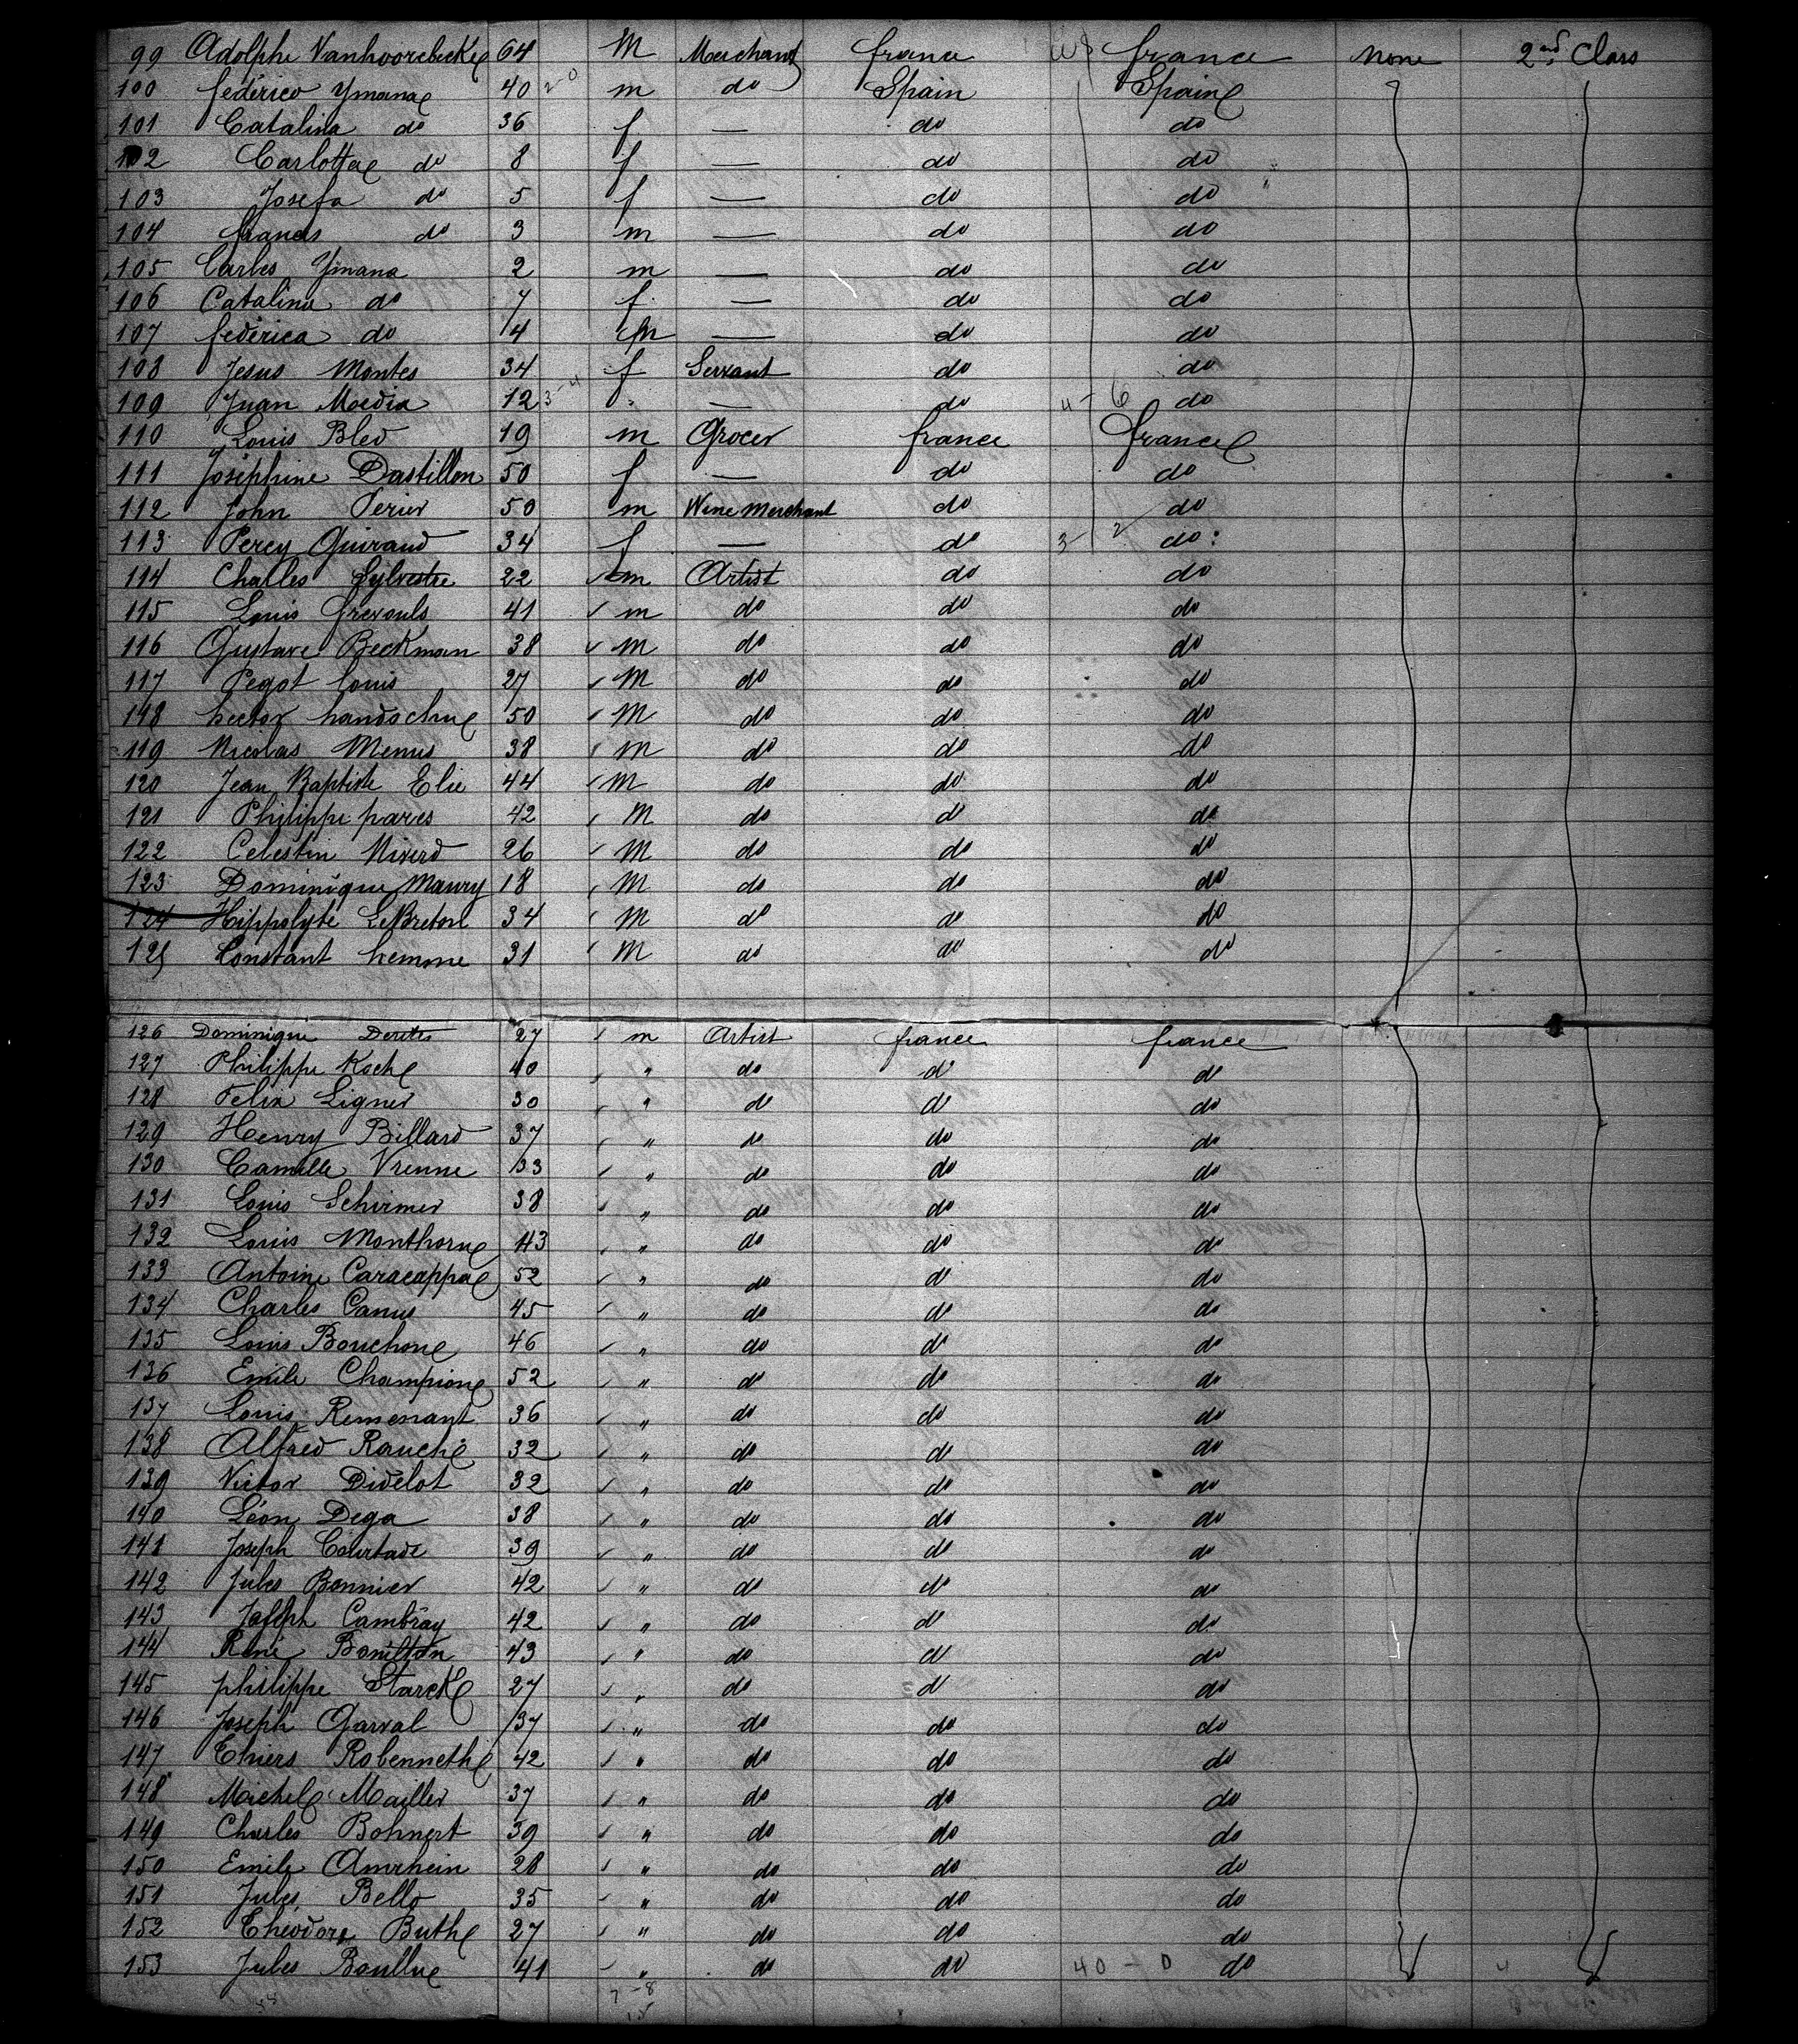 99 Adolphe Vanhoorebecke 64 M Merchant france france none 2nd Class
100 federico Ymana 40 m do Spain Spain
101 Catalina do 36 f — do do
102 Carlotta do 8 f — do do
103 Josefa do 5 f — do do
104 francis do 3 m — do do
105 Carlos Ymana 2 m — do do
106 Catalina do 7 f — do do
107 federica do 14 m — do do
108 Jesus Montes 34 f Servant do do
109 Juan Moedia 12 — do do
110 Louis Bled 19 m Grocer france france
111 Joséphine Dastillon 50 f — do do
112 John Perier 50 m Wine Merchant do do
113 Percy Guiraud 34 f — do do
114 Charles Sylvestre 22 m Artist do do
115 Louis frexouls 41 m do do do
116 Gustave Beckman 38 M do do do
117 Pegot Louis 27 M do do do
118 hector handschue 50 M do do do
119 Nicolas Menus 38 m do do do
120 Jean Baptiste Elie 44 M do do do
121 Philippe pares 42 M do do do
122 Celestin Niverd 26 M do do do
123 Dominique Maury 18 M do do do
124 Hippolyte LeBreton 34 M do do do
125 Constant hemme 31 M do do do
126 Dominique 27 m Artist france france
127 Philippe Koch 40 " do do do
128 Felix Ligner 30 " do do do
129 Henry Billard 37 " do do do
130 Camille Vrenne 33 " do do do
131 Louis Schirmer 38 " do do do
132 Louis Monthorne 43 " do do do
133 Antoine Caracappa 52 " do do do
134 Charles Camus 45 " do do do
135 Louis Bouchon 46 " do do do
136 Emile Champion 52 " do do do
137 Louis Remenant 36 " do do do
138 Alfred Rauché 32 " do do do
139 Victor Didelot 32 " do do do
140 Léon Dega 38 " do do do
141 Joseph Courtade 39 " do do do
142 Jules Bonnier 42 " do do do
143 Joseph Cambray 42 " do do do
144 René Bonilton 43 " do do do
145 philippe Starck 27 " do do do
146 Joseph Garral 37 " do do do
147 Thiers Robenneth 42 " do do do
148 Michel Mailler 37 " do do do
149 Charles Bohnert 39 " do do do
150 Emile Amrhein 28 " do do do
151 Jules Bello 35 " do do do
152 Théodore Buth 27 " do do do
153 Jules Boullue 41 " do do 40 - 0 do
7-8